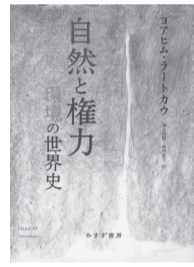 ヨアヒム・ラートカウ
自然と権力
環境の世界史
みすず書房